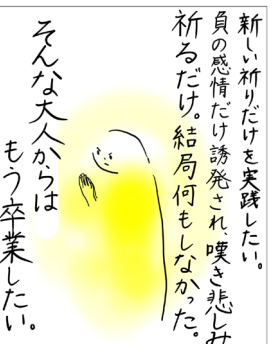 新しい祈りだけを実践したい。
負の感情だけ誘発され、嘆き悲しみ
祈るだけ。結局何もしなかった。
そんな大人からは
もう卒業したい。